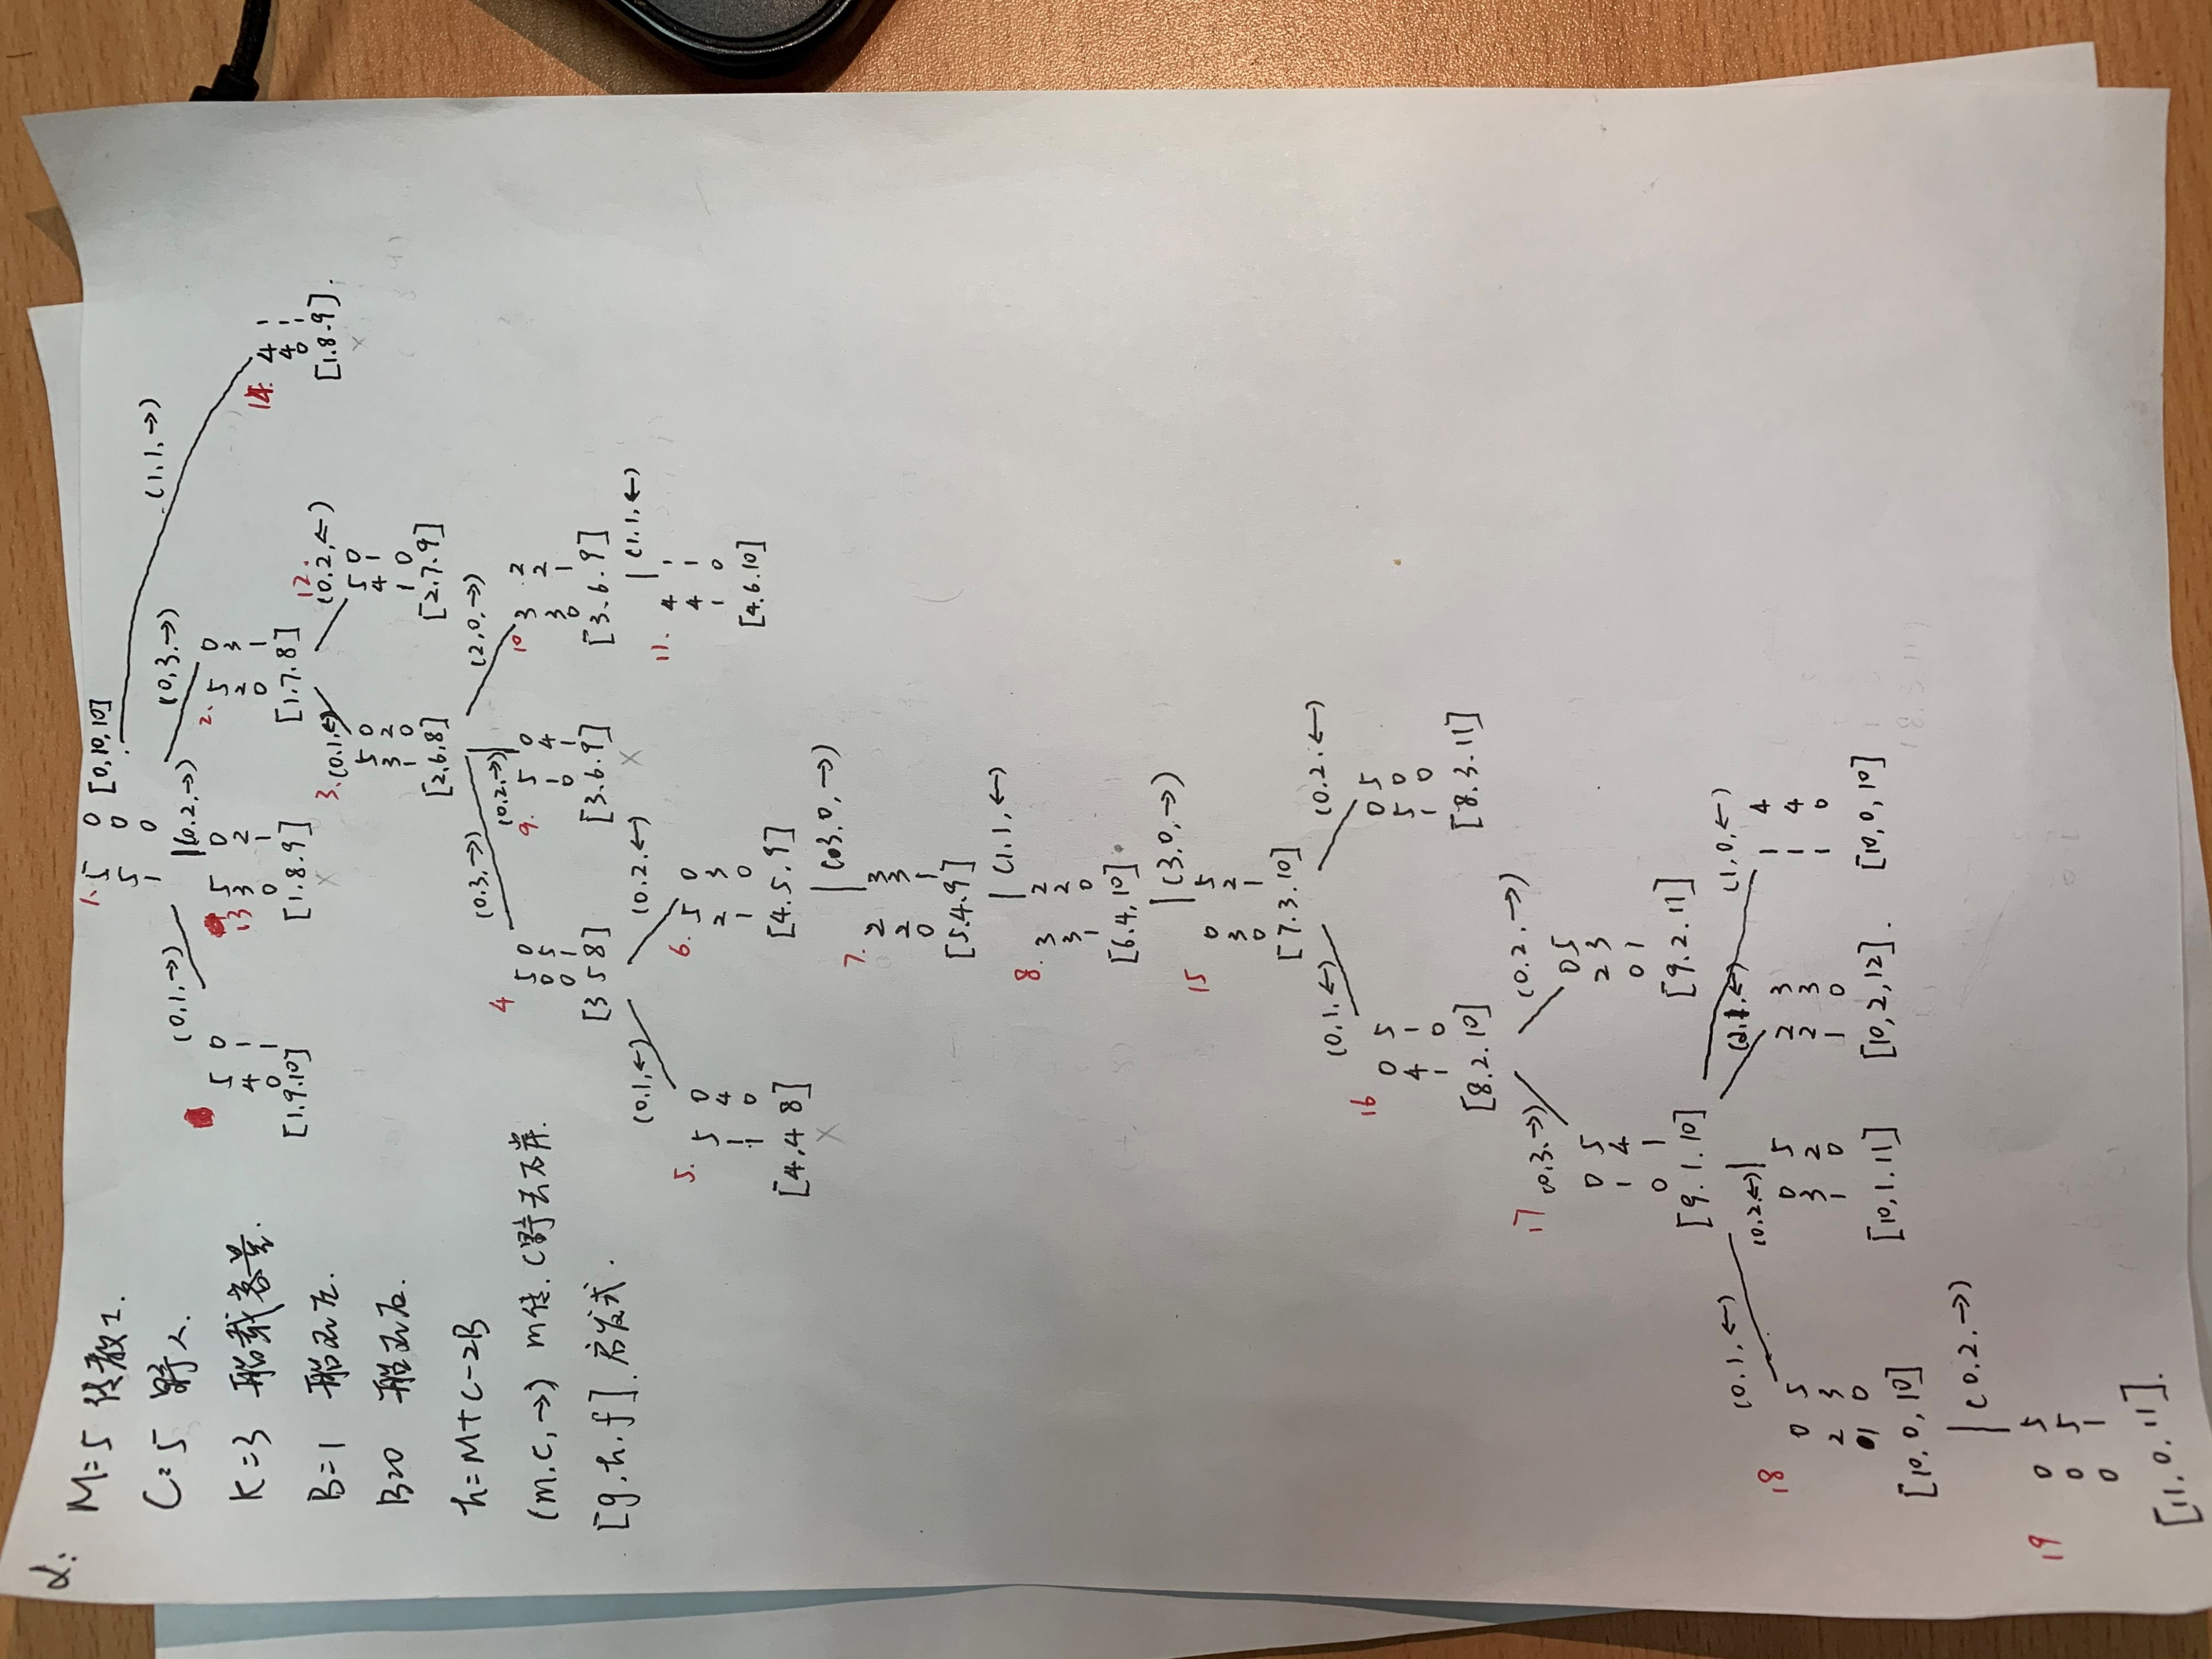 α:
M=5 传教士.
C=5 野人.
K=3 船载容量.
B=1 船在左.
B=0 船在右.
h=M+C-2B
(m.c,→) m传. C野去右岸.
[g.h.f].启发式.
1. 5 0
5 0
1 0 [0,10,10]
(0.1,→) (0.2,→) (0,3.→) (1.1.→)
5 0
4 1
0 1
[1.9.10]
13 5 0
3 2
0 1
[1.8.9]
×
2. 5 0
2 3
0 1
[1.7.8]
14. 4 1
4 1
0 1
[1.8.9].
×
3. (0.1,←)
5 0
3 2
1 0
[2,6,8]
12. (0.2,←)
5 0
4 1
1 0
[2.7.9]
(0.3,→) (0.2,→) (2,0,→)
4 5 0
0 5
0 1
[3 5 8]
9. 5 0
1 4
0 1
[3.6.9]
×
10 3 2
3 2
0 1
[3.6.9]
(1.1,←)
11. 4 1
4 1
1 0
[4.6.10]
(0.1,←) (0.2.←)
5. 5 0
1 4
1 0
[4,4 8]
×
6. 5 0
2 3
1 0
[4.5.9]
(3.0,→)
7. 2 3
2 3
0 1
[5.4.9]
(1.1,←)
8. 3 2
3 2
1 0
[6.4,10]
(3.0,→)
15 0 5
3 2
0 1
[7.3.10]
(0.1.←) (0.2.←)
16 0 5
4 1
1 0
[8.2.10]
0 5
5 0
1 0
[8.3.11]
17 (0.3.→) (0.2.→)
0 5
1 4
0 1
[9.1.10]
0 5
2 3
0 1
[9.2.11]
(0.1,←) (0.2.←) (1,0,←)
18 0 5
2 3
1 0
[10,0,10]
0 5
3 2
1 0
[10,1.11]
2 3
2 3
1 0
[10,2,12].
1 4
1 4
1 0
[10,0,10]
(0.2.→)
19 0 5
0 5
0 1
[11,0.11].